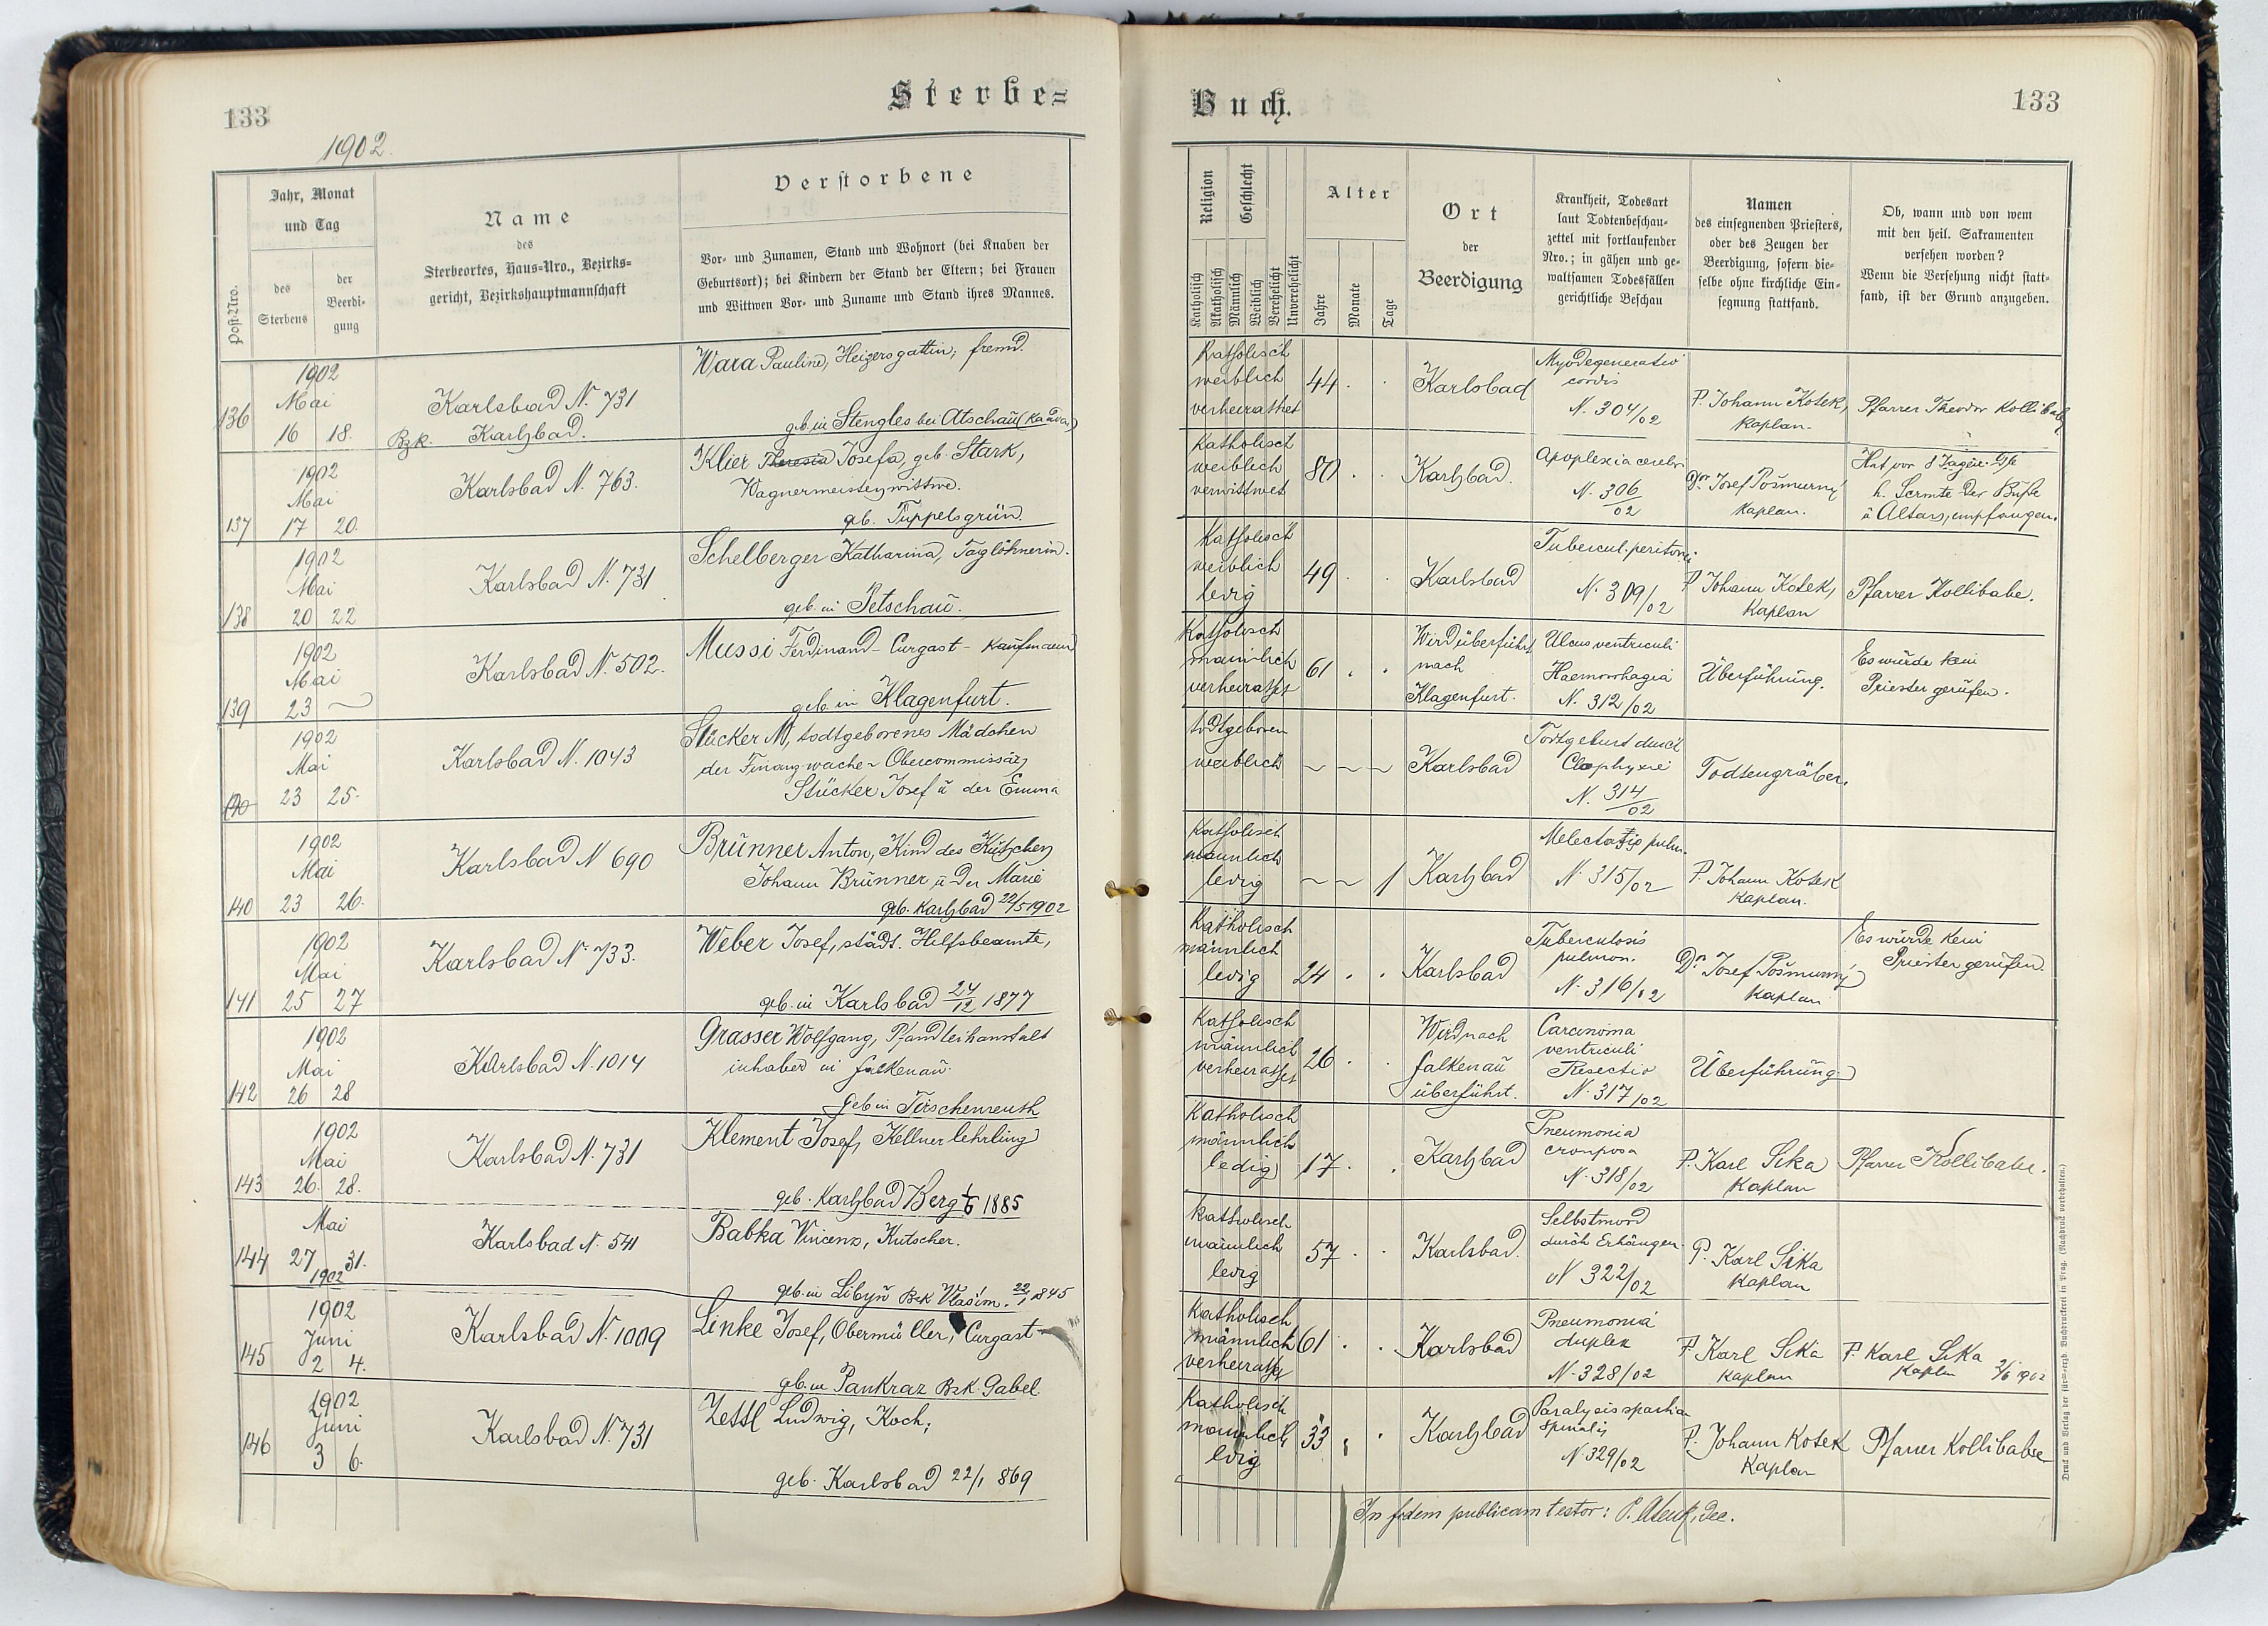 133
Sterbe=
1902.
Post-Nro.
Jahr, Monat
und Tag
des
Sterbens
der
Beerdi-
gung
Name
des
Sterbeortes, Haus-Nro., Bezirks-
gericht, Bezirkshauptmannschaft
Verstorbene
Vor- und Zunamen, Stand und Wohnort (bei Knaben der
Geburtsort); bei Kindern der Stand der Eltern; bei Frauen
und Wittwen Vor- und Zuname und Stand ihres Mannes.
1902
Mai
136 16 18.
Karlsbad N. 731
Bzk. Karlsbad.
Wara Pauline, Heizersgattin, fremd.
geb. in Stengles bei Atschau
1902
Mai
137 17 20.
Karlsbad N. 763.
Klier Theresia Josefa, geb. Stark,
Wagnermeisterswittwe.
geb. Tüppelsgrün.
1902
Mai
138 20 22
Karlsbad N. 731
Schelberger Katharina, Taglöhnerin.
geb. in Petschau.
1902
Mai
139 23
Karlsbad N. 502.
Mussi Ferdinand - Curgast - Kaufmann
geb. in Klagenfurt.
1902
Mai
23 25.
Karlsbad N. 1043
Stücker N, todtgeborenes Mädchen
der Finanzwache - Obercommissärs
Stücker Josef u der Emma
1902
Mai
140 23 26.
Karlsbad N 690
Brünner Anton, Kind des Kutschers
Johann Brünner u der Marie
geb. Karlsbad 22/5 1902
1902
Mai
141 25 27
Karlsbad N 733.
Weber Josef, städt. Hilfsbeamte,
geb. in Karlsbad 24/12 1877
1902
Mai
142 26 28
Karlsbad N. 1014
Grasser Wolfgang, Pfandleihanstalt
inhaber in Falkenau.
geb in Tirschenreuth
1902
Mai
143 26. 28.
Karlsbad N. 731
Klement Josef, Kellnerlehrling
geb. Karlsbad Berg 1/6 1885
Mai
144 27 31.
1902
Karlsbad N. 541
Babka Vincenz, Kutscher.
geb. in Libyň Bzk Vlasim. 22/1 1845
1902
Juni
145 2 4.
Karlsbad N. 1009
Linke Josef, Obermüller, Curgast
geb. in Pankraz Bzk. Gabel
1902
Juni
146 3 6.
Karlsbad N. 731
Zettl Ludwig, Koch;
geb. Karlsbad 22/1 869
Buch.
133
Religion
Geschlecht
Katholisch
Akatholisch
Männlich
Weiblich
Verehelicht
Unverehelicht
Alter
Jahre
Monate
Tage
Ort
der
Beerdigung
Krankheit, Todesart
laut Todtenbeschau-
zettel mit fortlaufender
Nro.; in gähen und ge-
waltsamen Todesfällen
gerichtliche Beschau
Namen
des einsegnenden Priesters,
oder des Zeugen der
Beerdigung, sofern die-
selbe ohne kirchliche Ein-
segnung stattfand.
Ob, wann und von wem
mit den heil. Sakramenten
versehen worden?
Wenn die Versehung nicht statt-
fand, ist der Grund anzugeben.
Katholisch
weiblich
verheirathet
44
Karlsbad
Myodegeneratio
cordis
N. 304/02
P. Johann Kosek,
Kaplan.
Pfarrer Theodor Kollibabe
Katholisch
weiblich
verwittwet
80
Karlsbad.
Apoplexia cerebri
N. 306/02
Dr. Josef Pošmurný
Kaplan.
Hat vor 8 Tagen die
h. Scrmte der Buße
u Altars, empfangen.
Katholisch
weiblich
ledig
49
Karlsbad
Tubercul. peritonei
N. 309/02
P. Johann Kosek,
Kaplan
Pfarrer Kollibabe.
Katholisch
männlich
verheirathet
61
Wird überführt
nach
Klagenfurt.
Ulcus ventriculi
Haemorrhagia
N. 312/02
Überführung.
Es wurde kein
Priester gerufen.
todtgeboren
weiblich
Karlsbad
Todtgeburt durch
N. 314/02
Todtengräber.
Katholisch
männlich
ledig
1
Karlsbad
N. 315/02
P. Johann Kosek
Kaplan.
Katholisch
männlich
ledig
24
Karlsbad
Tuberculosis
pulmon.
N. 316/02
Dr. Josef Pošmurný
Kaplan
Es wurde kein
Priester gerufen.
Katholisch
männlich
verheirathet
26
Wird nach
Falkenau
überführt.
Carcinoma
ventriculi
Resectio
N. 317/02
Überführung
Katholisch
männlich
ledig
17.
Karlsbad
Pneumonia
crouposa
N. 318/02
P. Karl Sika
Kaplan
Pfarrer Kollibabe.
Katholisch
männlich
ledig
57
Karlsbad.
Selbstmord
durch Erhängen.
N 322/02
P. Karl Sika
Kaplan
Katholisch
männlich
verheirathet
61
Karlsbad
Pneumonia
duplex
N. 328/02
P. Karl Sika
Kaplan
P. Karl Sika
Kaplan 2/6 1902
Katholisch
männlich
ledig
33
Karlsbad
Paralysis spastica
spinalis
N 329/02
P. Johann Kosek
Kaplan
Pfarrer Kollibabe
In fidem publicam testor: P.
Druck und Verlag der fürst-erzb. Buchdruckerei in Prag. (Nachdruck vorbehalten.)